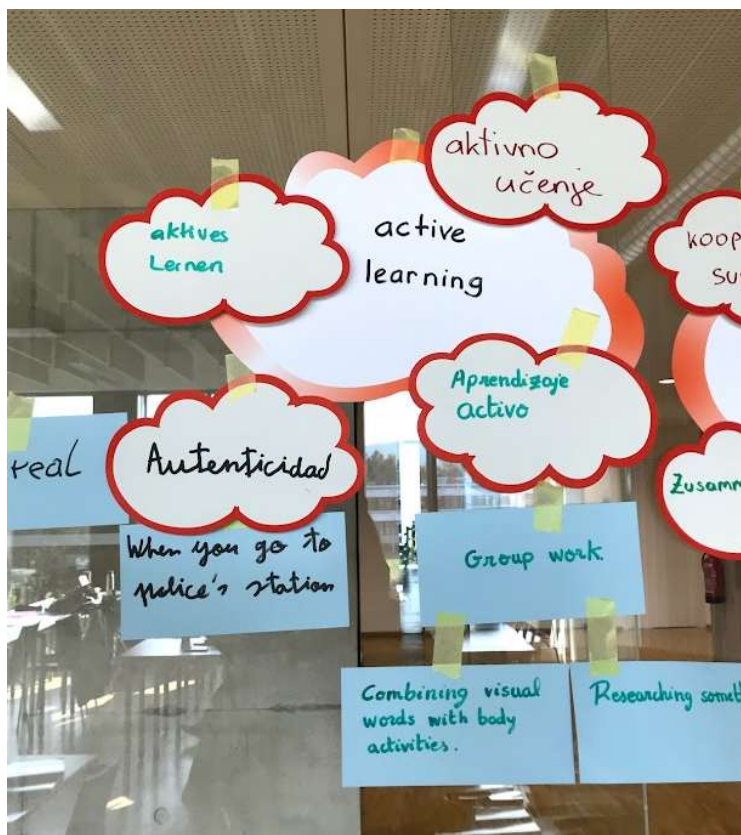 aktivno
učenje
active
learning
aktives
Lernen
koop
Aprendizaje
activo
real
Autenticidad
Zusamm
When you go to
police's station
Group work.
Combining visual
words with body
activities.
Researching somet